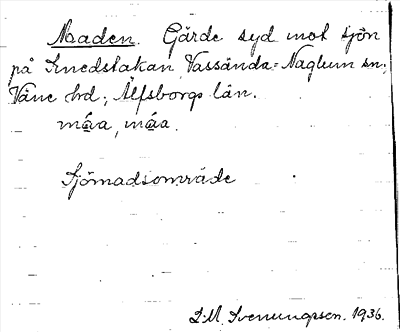 Maden. Gärde syd mot sjön
på Smedstakan, Vassända-Naglum sn;
Väne hd; Älfsborgs län.
måva, måa.
Sjömadsområde
S.M. Svenungsson. 1936.